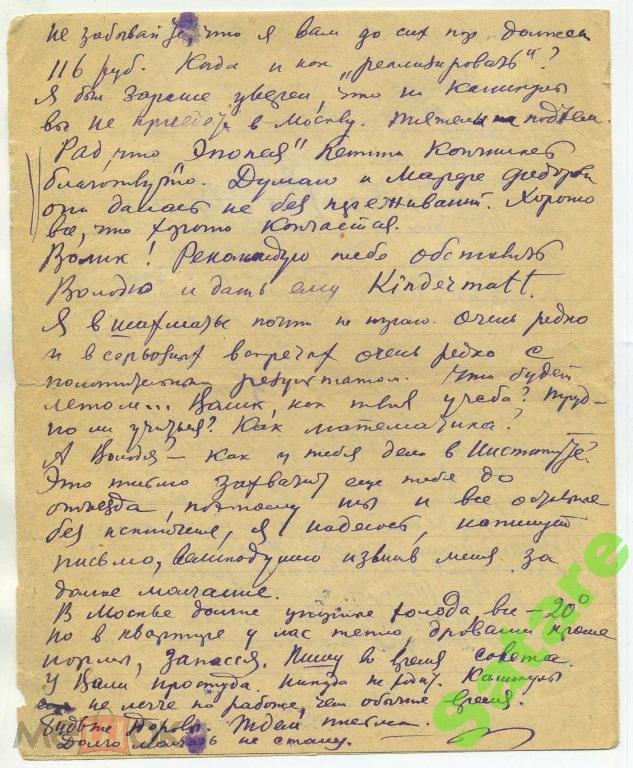 Не забывайте, что я вам до сих пор должен
116 руб. Когда и как „реализировать"?
Я был заранее уверен, что на каникулы
вы не приедете в Москву. Тяжелы на подъем.
Рад, что „Эпопея" Кетти Кончилась
благополучно. Думаю и Марфе Федоровне
они дались не без переживаний. Хорошо
все, что хорошо кончается.
Волик! Рекомендую тебе обставить
Володю и дать ему Kindermatt.
Я в шахматы почти не играю. Очень редко
и в серьозных встречах очень редко с
результатом. Что будет
летом... Волик, как твоя учеба? Труд-
но ли учиться? Как математика?
А Володя — как у тебя дело в Институте?
Это письмо захватит еще тебя до
отъезда, поэтому ты и все остальные
без исключения, я надеюсь, напишут
письмо, великодушно извинив меня за
долгое молчание.
В Москве долгие холода, все -20°
но в квартире у нас тепло, дровами кроме
запасся. Пишу во время совета.
У Вали простуда. Никуда не ходит. Каникулы
не легче по работе, чем обычное время.
Будьте здоровы. Ждем письма.
Долго молчать не стану.
Sature